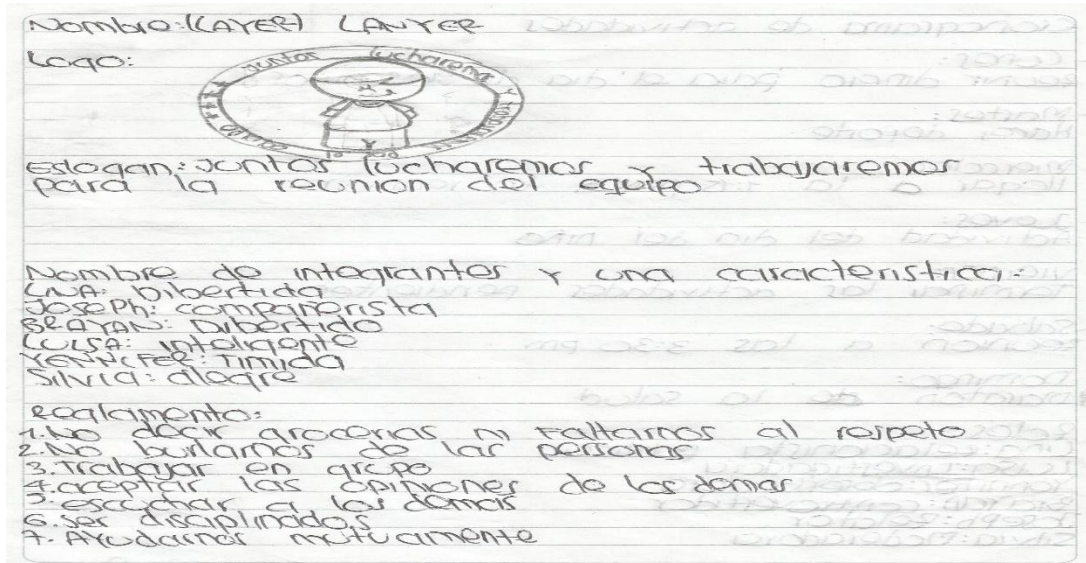 Nombre:(LAYER) LANYER
Logo:
juntos lucharemos y
Eslogan: Juntos lucharemos y trabajaremos
para la reunion del equipo
Nombre de integrantes y una caracteristica:
LINA: Dibertida
JOSEPh: compañerista
BRAYAN: Dibertido
LUISA: inteligente
YENNIFER: Timida
Silvia: alegre
Reglamento:
1. No decir grocerias ni Faltarnos al respeto
2. No burlarnos de las personas
3. Trabajar en grupo
4. aceptar las opiniones de los demas
5. escuchar a los demas
6. ser disciplinados
7. Ayudarnos mutuamente